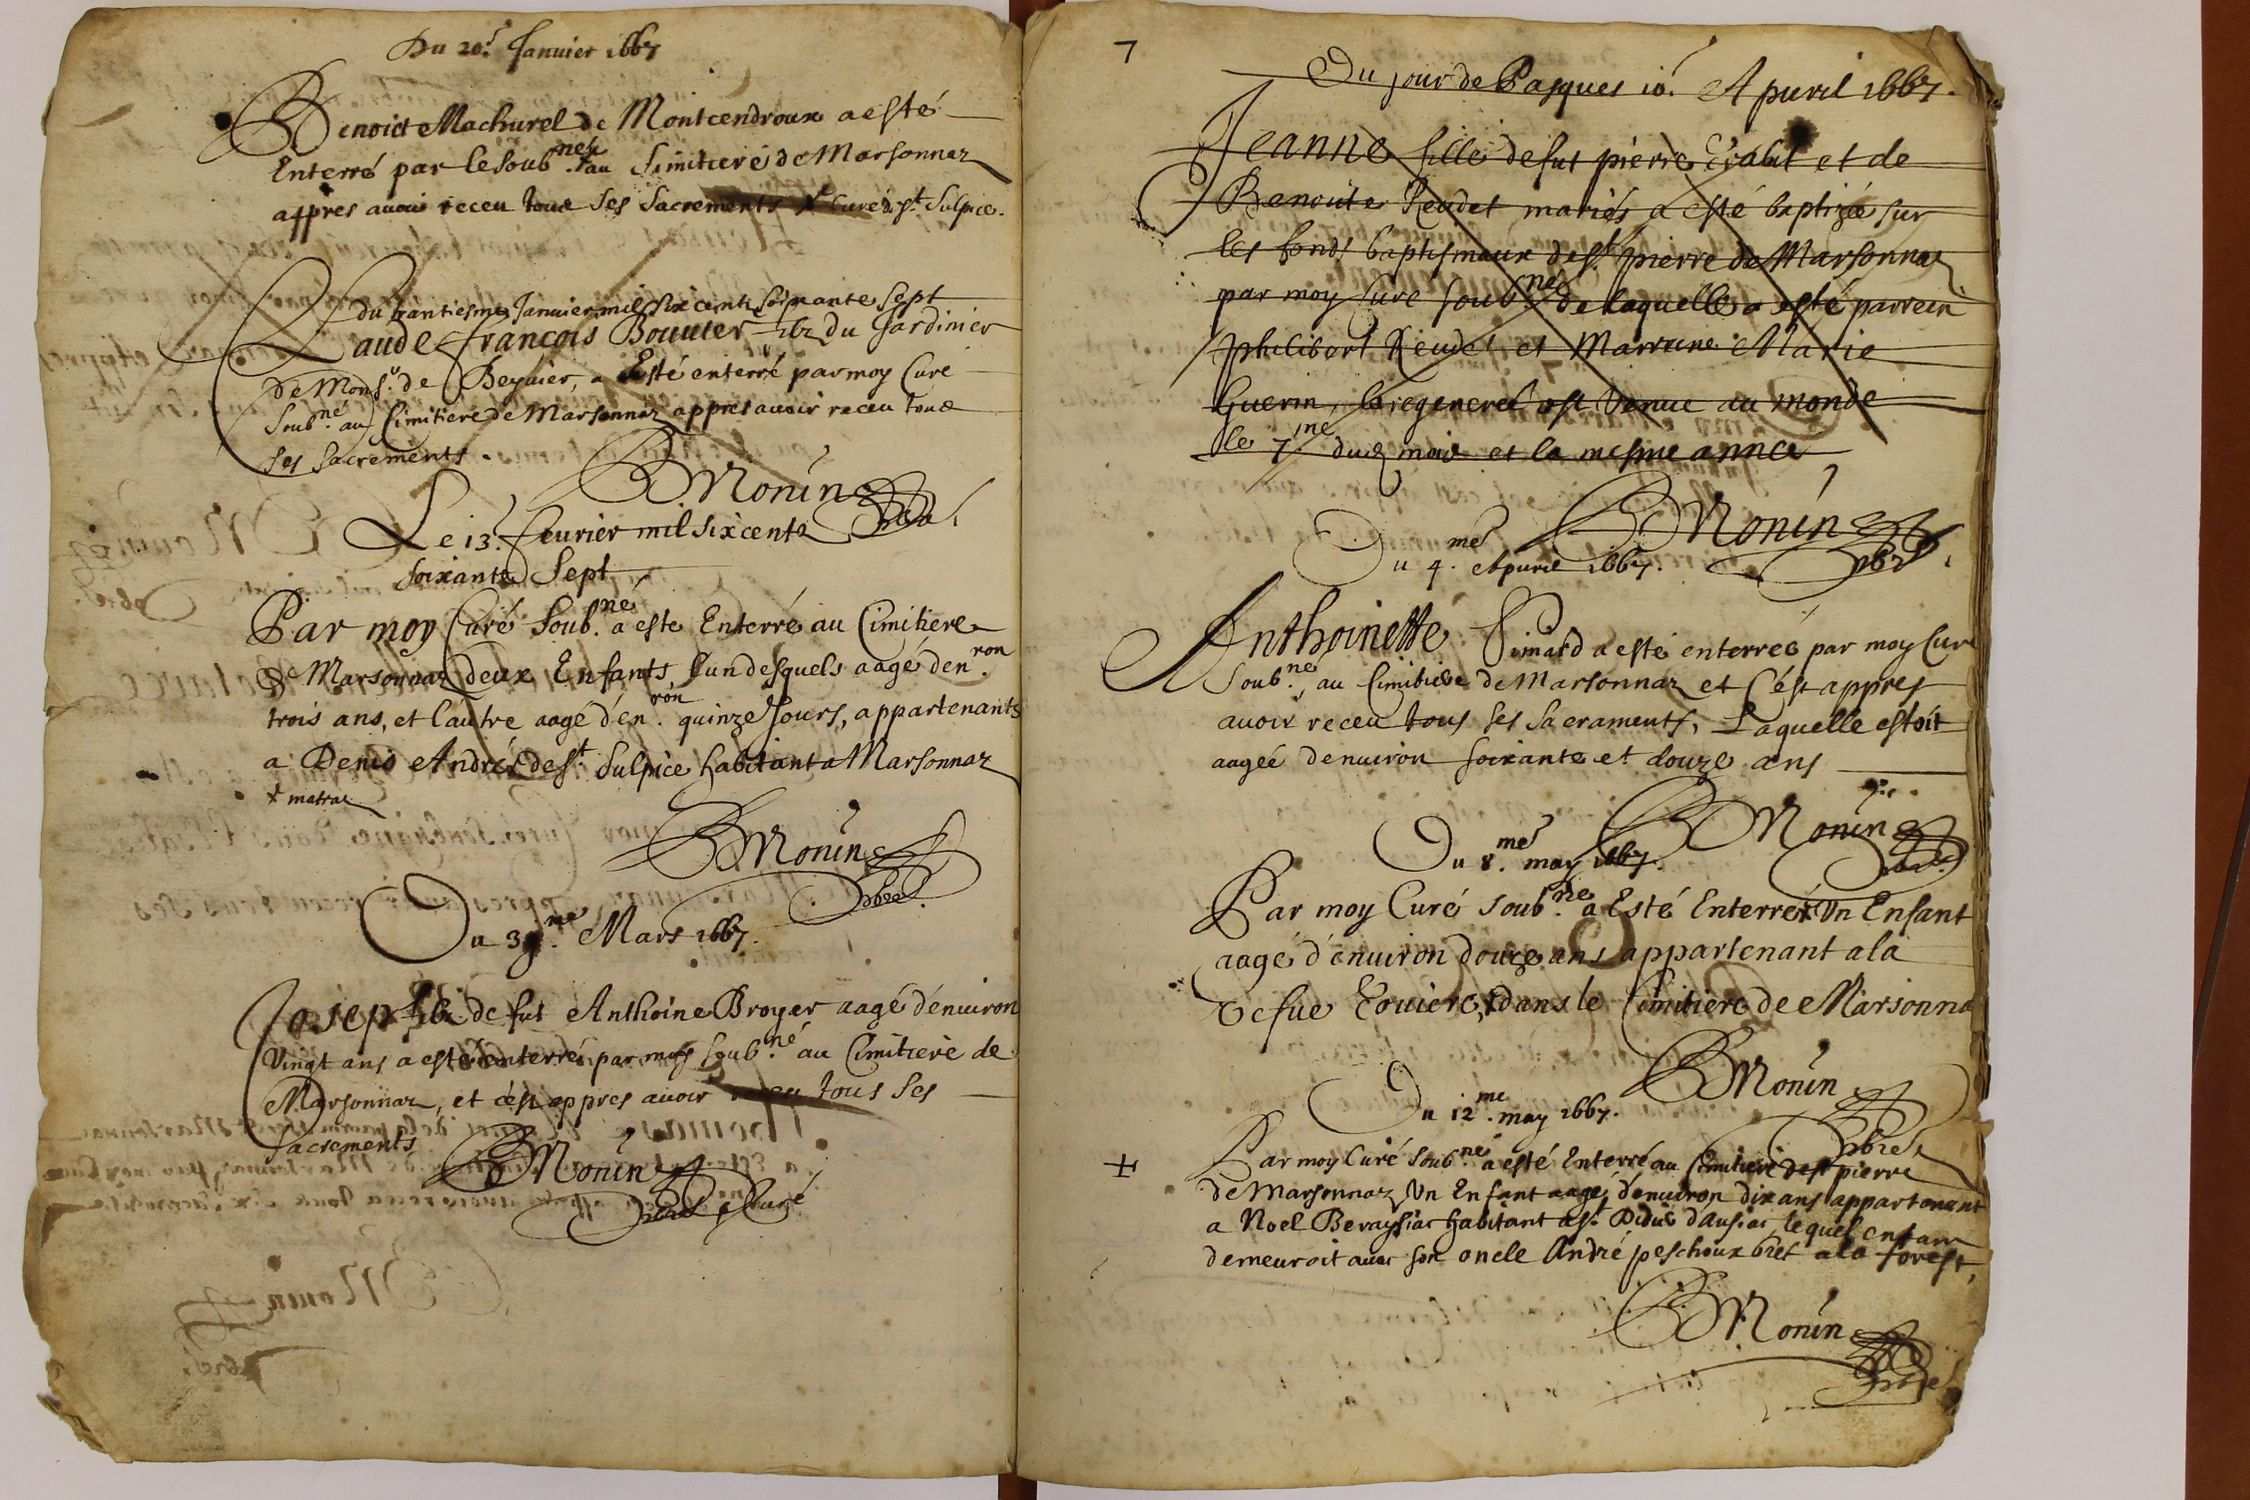 Du 20.e Januier 1667
Benoict Machurel de Montcendroux a esté
Enterré par le Soub.né au Simitiere de Marsonnaz
appres auoir receu tous ses Sacrements Curé de St. Sulpice.
du trantiesme Januier mil six cents soixante sept
Claude francois Bouuier filz du Jardinier
de Mons.r de Beyuier, a Esté enterré par moy Curé
Soub.né au Cimitiere de Marsonnaz appres auoir receu tous
ses sacrements.
BMonin
pbre.
Le 13.e feurier mil six cents
soixante Sept
Par moy Curé Soub.né a este Enterré au Cimitiere
de Marsonnaz deux Enfants, l'un desquels aagé d'en.ron
trois ans, et l'autre aagé d'en.ron quinze Jours, appartenants
a Denis André de St. Sulpice habitant a Marsonnaz
BMonin
pbre.
Du 3.me Mars 1667.
Joseph filz de fut Anthoine Broyer aagé d'enuiron
Vingt ans a esté enterré par moy soub.né au Cimitiere de
Marsonnaz, et c'est appres auoir receu tous ses
sacrements
BMonin
pbre Curé
7
Du jour de Pasques 10.e Apuril 1667.
Jeanne fille de fut pierre et de
Benoite Reudet mariés a esté baptizée sur
les fonds baptismaux de St. pierre de Marsonnaz
par moy Curé soub.né de laquelle a esté parrein
philibert Reudet et Marrine Marie
Guerin, la regeneree est venue au monde
le 7.me dud mois et la mesme annee
BMonin
pbre.
Du 4.me Apuril 1667.
Anthoinette a esté enterree par moy Curé
Soub.né, au Cimitiere de Marsonnaz et c'est appres
auoir receu tous ses sacraments, Laquelle estoit
aagée denuiron soixante et douze ans
BMonin
pbre.
Du 8.me may 1667.
Par moy Curé soub.né a Esté Enterré Un Enfant
aagé d'enuiron douze ans appartenant a la
Vefue dans le Cimitiere de Marsonna
BMonin
pbre
Du 12.me may 1667.
Par moy Curé soub.né a esté Enterré au Cimitiere de St pierre
de Marsonnaz Un Enfant aagé d'enuiron dix ans appartenant
a Noel habitant a St. Didié d'Ausiat lequel enfant
demeuroit auec son oncle André peschoux a la forest,
BMonin
pbre